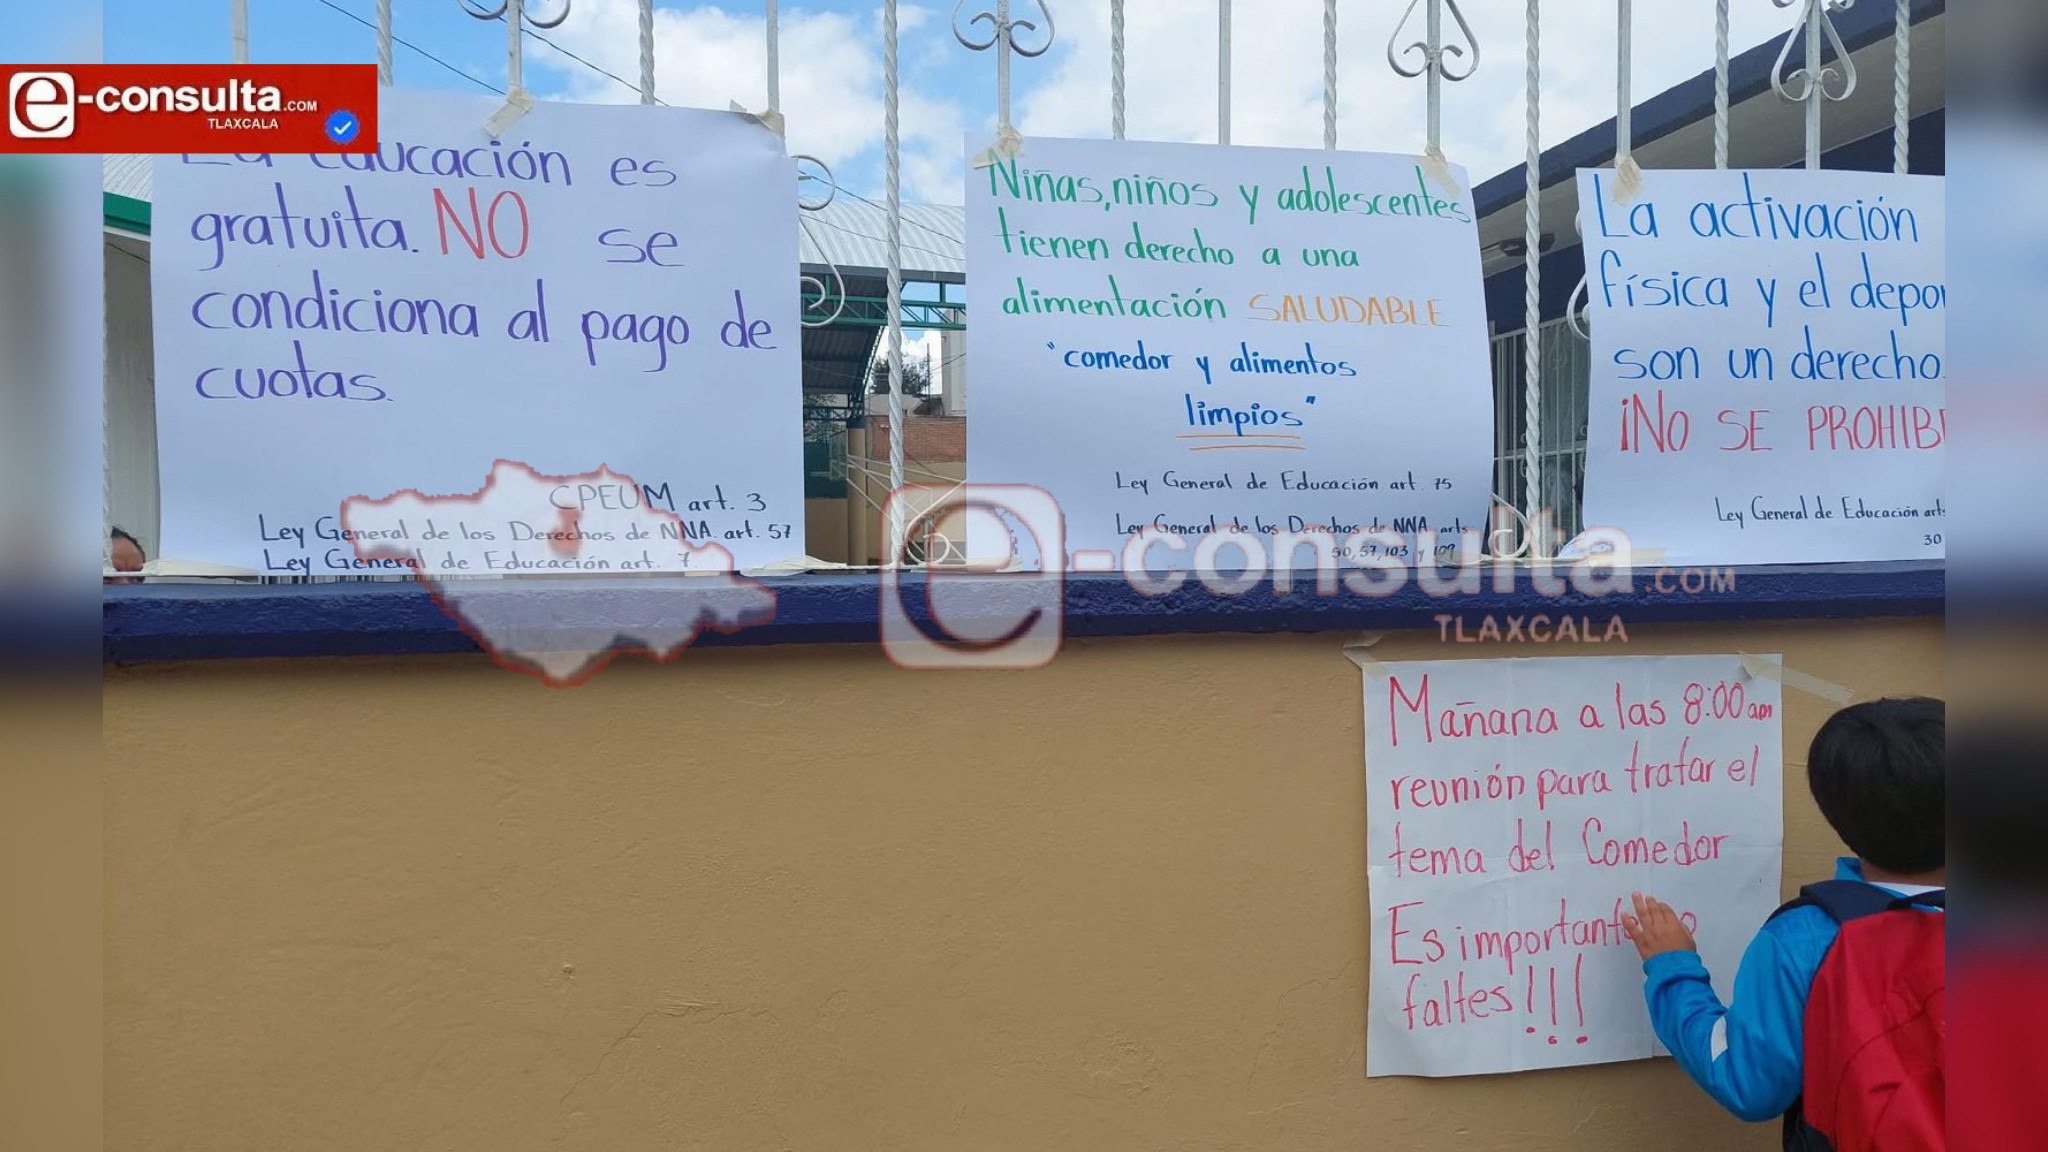 e-consulta.COM
TLAXCALA
La educación es
gratuita. NO se
condiciona al pago de
cuotas.
CPEUM art. 3
Ley General de los Derechos de NNA. art. 57
Ley General de Educación art. 7.
Niñas, niños y adolescentes
tienen derecho a una
alimentación SALUDABLE
"comedor y alimentos
limpios"
Ley General de Educación art. 75
Ley General de los Derechos de NNA arts
50, 57, 103 y 109
La activación
física y el depor
son un derecho.
¡NO SE PROHIB
Ley General de Educación arts
30
e-consulta.COM
TLAXCALA
Mañana a las 8:00 am
reunión para tratar el
tema del Comedor
Es important
faltes!!!